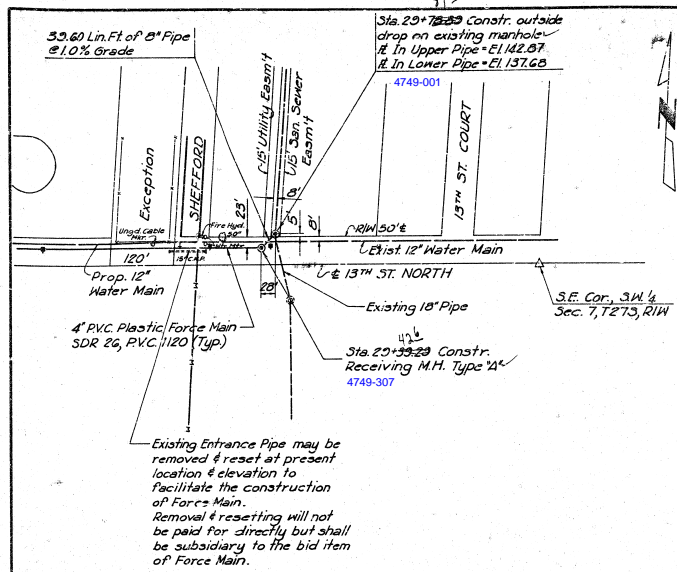 39.60 Lin.Ft of 8" Pipe
@ 1.0% Grade
Sta. 29+79.59 Constr. outside
drop on existing manhole
℄ In Upper Pipe = El. 142.87
℄ In Lower Pipe = El. 137.68
4749-001
N
Exception
SHEFFORD
15' Utility Easm't
15' San. Sewer
Easm't
13TH ST. COURT
8'
23'
5'
8'
Fire Hyd.
50"
Ungd. Cable
Mkr.
R/W 50' ℄
Exist. 12" Water Main
120'
15" C.M.P.
Prop. 12"
Water Main
28'
℄ 13TH ST. NORTH
Existing 18" Pipe
S.E. Cor., S.W. 1/4
Sec. 7, T27S, R1W
4" P.V.C. Plastic Force Main
SDR 26, P.V.C. 1120 (Typ.)
42 6
Sta. 29+39.29 Constr.
Receiving M.H. Type "A"
4749-307
Existing Entrance Pipe may be
removed & reset at present
location & elevation to
facilitate the construction
of Force Main.
Removal & resetting will not
be paid for directly but shall
be subsidiary to the bid item
of Force Main.